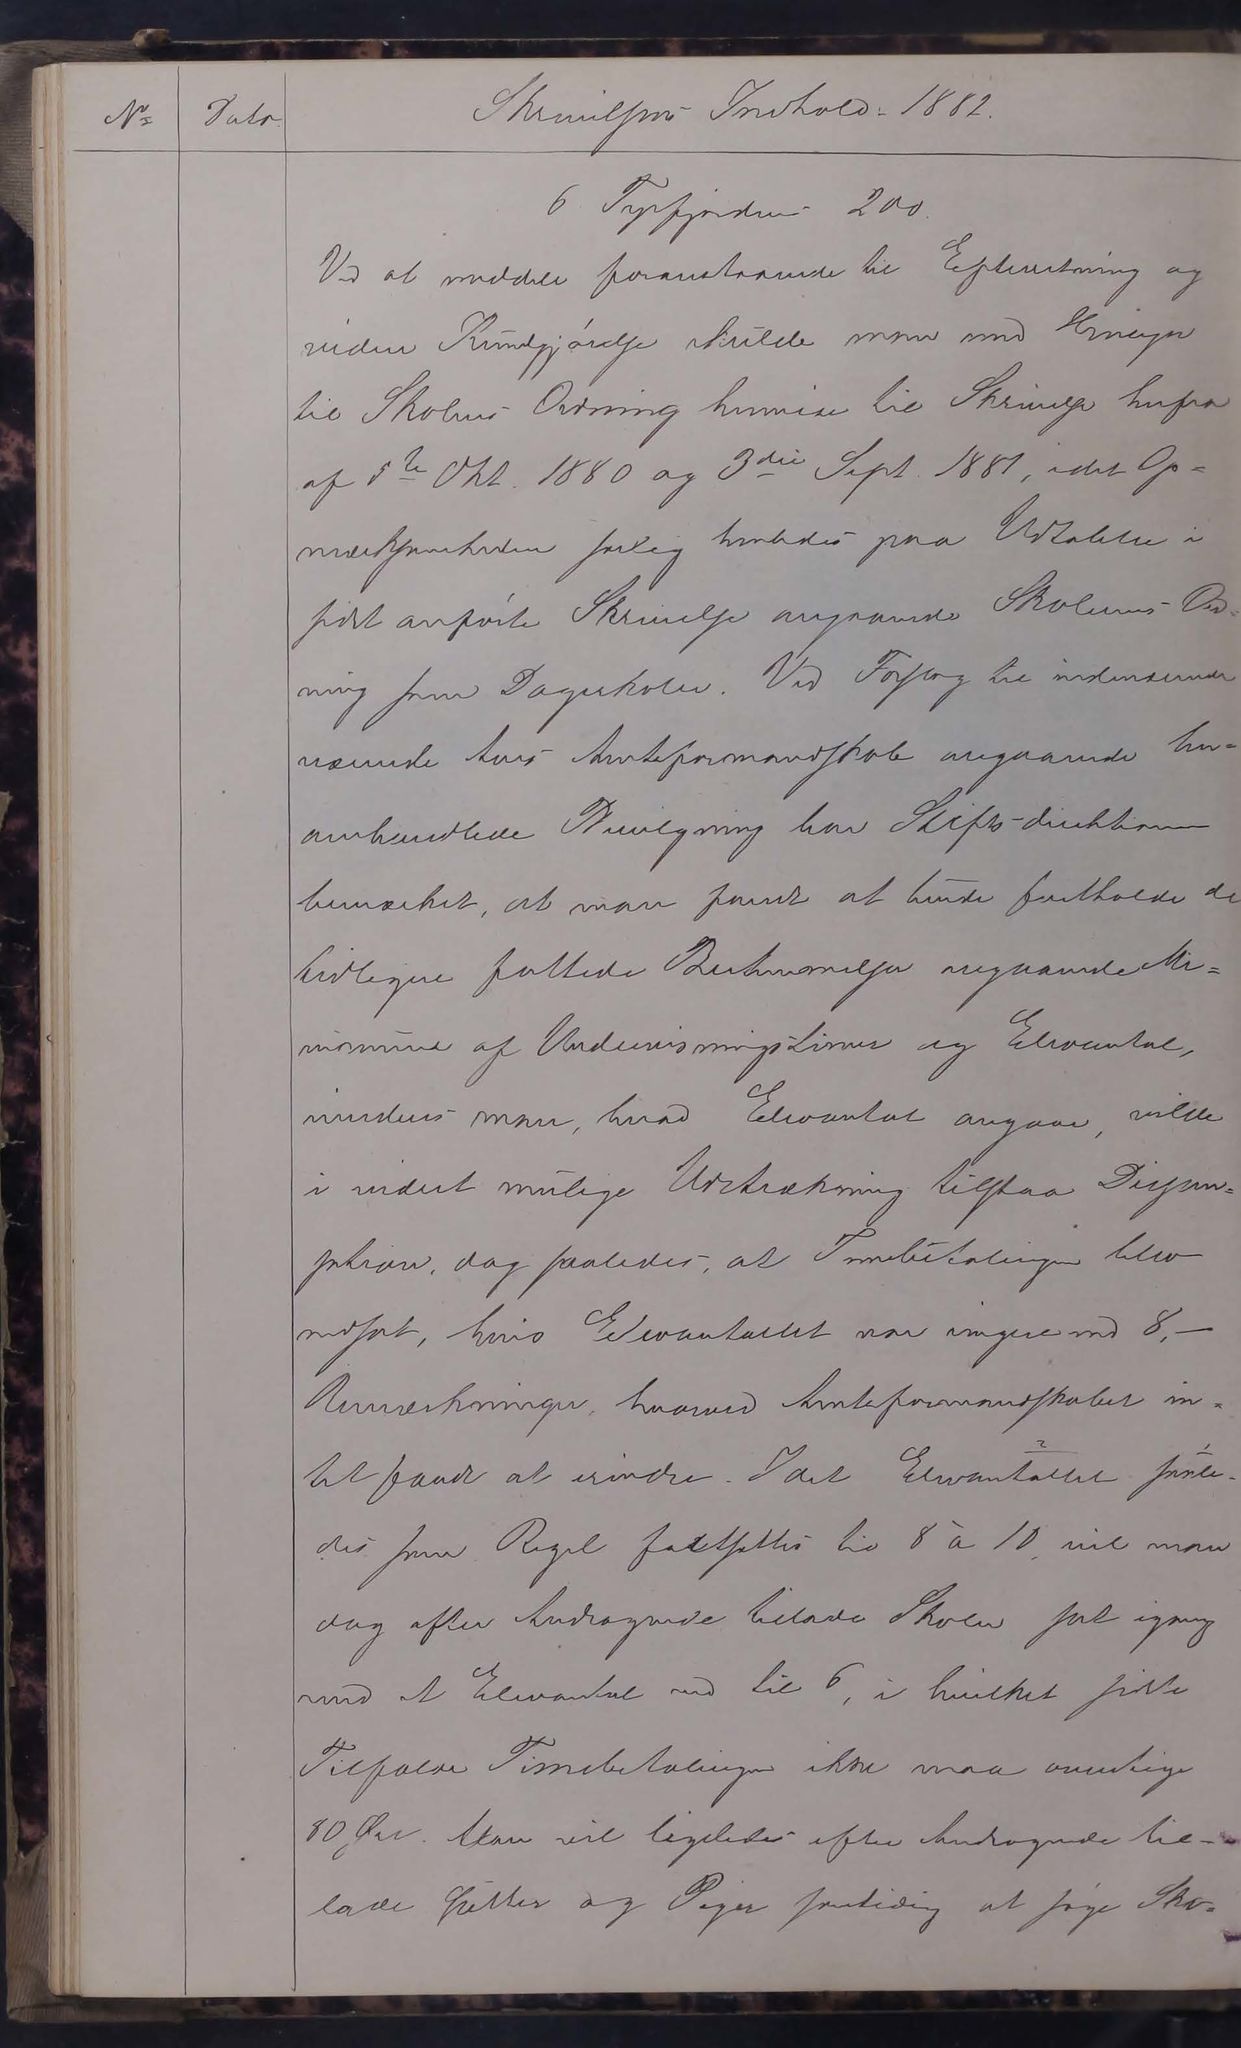 No Dato Skrivelsens Indhold. 1882.
6 Tysfjorden 200.
Ved at meddele foranstaaende til Efterretning og
videre Kundgjørelse skulde man med Hensyn
til Skolens Ordning henvise til Skrivelse herfra
af 5te Okt. 1880 og 3die Sept. 1881, idet Op=
mærksomheden særlig henledes paa Udtalelse i
sidst anførte Skrivelse angaaende Skolens Ord=
ning som Dagskoler. Ved Forslag til indeværende
Aars Amtsformandskab angaaende her=
omhandlede Bevilgning har Stifts-direktionen
bemærket, at man fandt at burde fastholde de
tidligere fattede Bestemmelser angaaende Mi=
nimum af Undervisningstimer og Elevantal,
medens man, hvad Elevantal angaar, vilde
i videst mulige Udstrækning tilstaa Dispen=
sation, dog saaledes, at Timebetalingen blev
nedsat, hvis Elevantallet var ringere end 8, —
Bemærkninger, hvorved Amtsformandskabet in=
tet fandt at erindre. Idet Elevantallet saale=
des som Regel fastsættes til 8 à 10, vil man
dog efter Andragende tillade Skolen sat igang
med et Elevantal ned til 6, i hvilket sidste
Tilfælde Timebetalingen ikke maa overstige
80 Øre. Man vil ligeledes efter Andragende til=
lade Gutter og Piger samtidig at søge Sko=